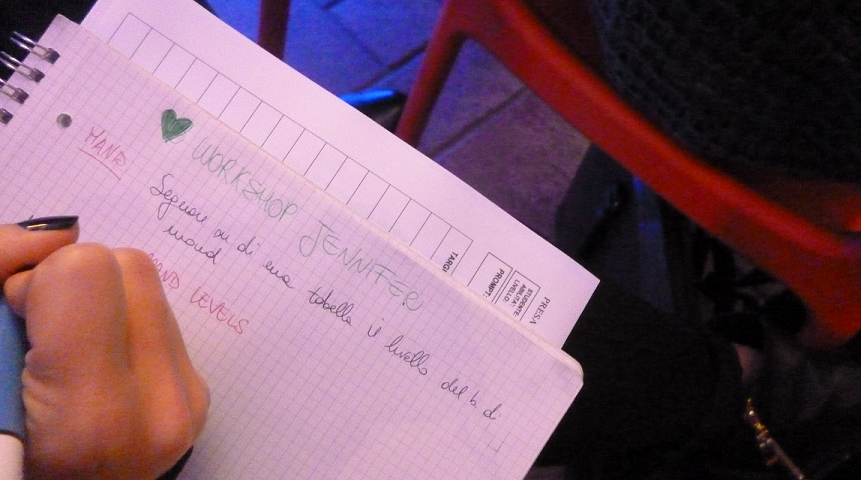 WORKSHOP JENNIFER
MAND
Segnare su di una tabella il livello del b. di
mand
MAND LEVELS
TARG
PROMPT:
STUDENTE
ABILITA'
LIVELLO
PRESA